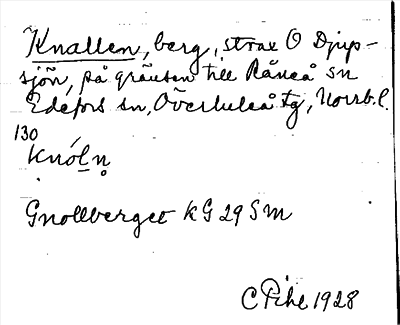 Knallen, berg, strax O Djup-
sjön, på gränsen till Råneå sn
Edefors sn, Överluleå tg, Norrb.l.
130
knóḷn̥
Gnollberget KG 29 S M
C Pihl 1928